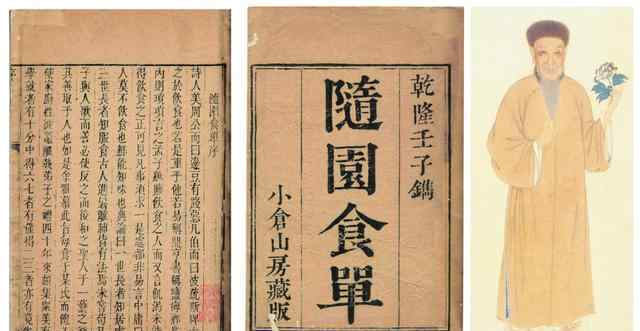 隨園食單序
詩人美周公而曰籩豆有踐惡凡伯而曰彼疏斯粺
之於飲食也若是重乎他若易稱鼎烹書稱鹽梅
內則瑣瑣言之孟子雖賤飲食之人而又言飢渴未
得飲食之正可見凡事須求一是處都非易言中庸
人莫不飲食也鮮能知味也典論曰一世長者知居
三世長者知服食古人進鬐離肺皆有法焉未嘗苟
子與人歌而善必使反之而後和之聖人于一藝之
其善取于人也如是余雅慕此旨每食于某氏而飽
使家廚往彼灶觚執弟子之禮四十年來頗集眾美
學就者有十分中得六七者有僅得二三者亦有竟
乾隆壬子鐫
隨園食單
小倉山房藏版